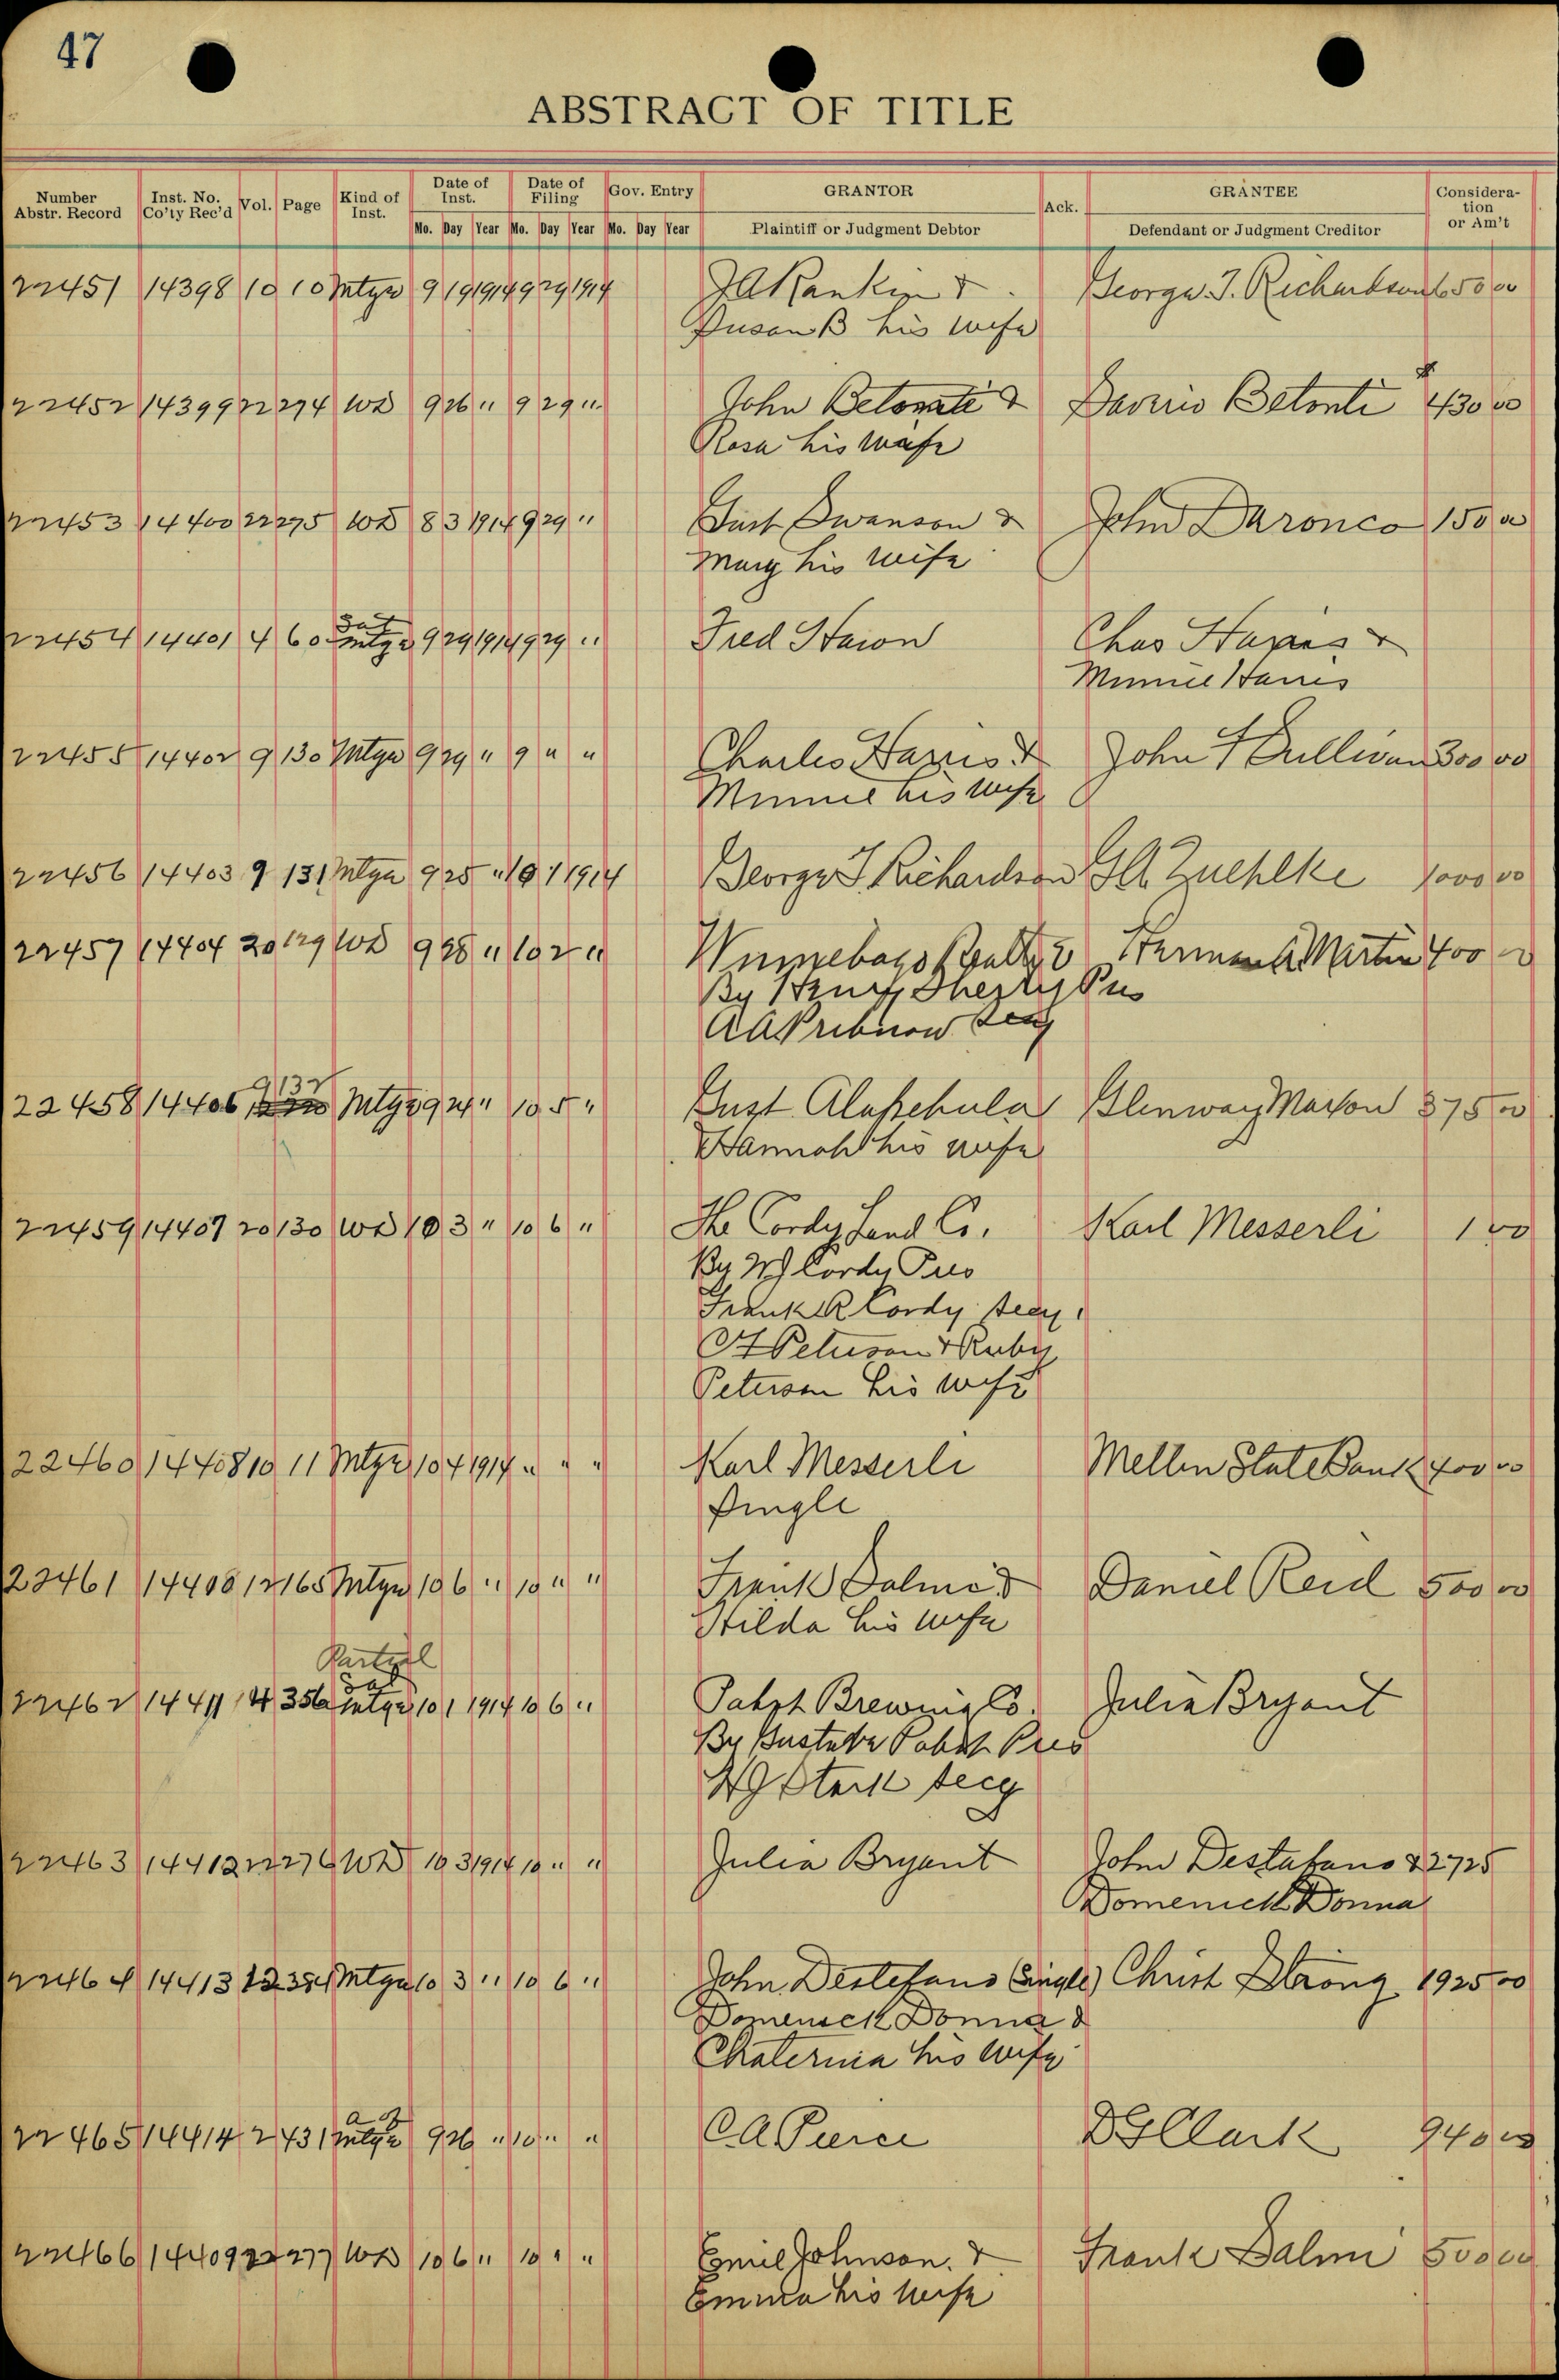 47
ABSTRACT OF TITLE
Number Abstr. Record Inst. No. Co'ty Rec'd Vol. Page Kind of Inst. Date of Inst. Date of Filing Gov. Entry GRANTOR Ack. GRANTEE Consideration or Am't
Mo. Day Year Mo. Day Year Mo. Day Year Plaintiff or Judgment Debtor Defendant or Judgment Creditor
22451 14398 10 10 Mtge 9 19 1914 9 29 1914 JA Rankin & George J. Richardson 650 00
Susan B his wife
22452 14399 22 274 WD 9 26 " 9 29 " John Betonti & Betonti 430 00
Rosa his wife
22453 14400 22 275 WD 8 3 1914 9 29 " Gust Swanson & John Daronco 150 00
Mary his wife
Sat
22454 14401 4 60 Mtge 9 29 1914 9 29 " Fred Chas Harris &
Minnie Harris
22455 14402 9 130 Mtge 9 29 " 9 " " Charles Harris & John Sullivan 300 00
Minnie his wife
22456 14403 9 131 Mtge 9 25 " 10 1 1914 George J Richardson Zuehlke 1000 00
22457 14404 20 129 WD 9 28 " 10 2 " Winnebago Realty Co Herman Martin 400
By Henry Sherry Pres
AA Pribnow Secy
9 132
22458 14406 Mtge 9 24 " 10 5 " Gust Glenway Maxon 375 00
Hannah his wife
22459 14407 20 130 WD 10 3 " 10 6 " The Cordy Land Co. Karl Messerli 1 00
By WJ Cordy Pres
Frank R Cordy Secy.
Peterson & Ruby
Peterson his wife
22460 14408 10 11 Mtge 10 4 1914 " " " Karl Messerli Mellen State Bank 400 00
Single
22461 14408 12 165 Mtge 10 6 " 10 " " Frank Salmi & Daniel Reid 500 00
Hilda his wife
Partial
Sat
22462 14411 14 356 Mtge 10 1 1914 10 6 " Pabst Brewing Co. Julia Bryant
By Gustave Pabst Pres
Stark Secy
22463 14412 22 276 WD 10 3 1914 10 " " Julia Bryant John Destafano & 2725
Domenick Donna
22464 14413 12 384 Mtge 10 3 " 10 6 " John Destefano (Single) Christ Strong 1925 00
Domenick Donna &
Chaterina his wife
a of
22465 14414 2 431 Mtge 9 26 " 10 " " C.A. Pierce Clark 940 00
22466 14409 22 277 WD 10 6 " 10 " " Emil Johnson & Frank Salmi 500 00
Emma his wife